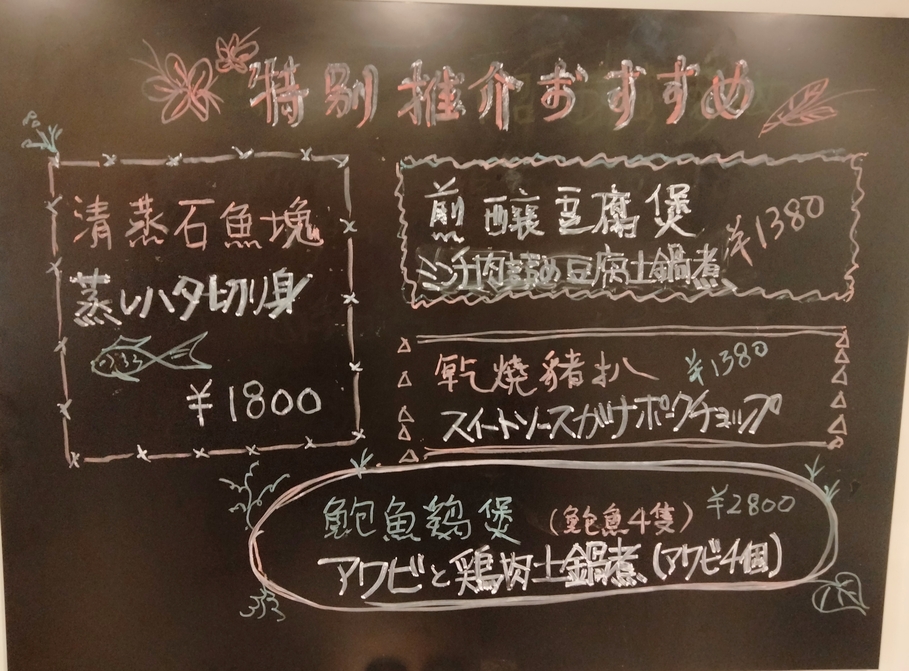 特别推介おすすめ
清蒸石魚塊
蒸しハタ切り身
¥1800
煎釀豆腐煲
¥1380
ミンチ肉詰め豆腐土鍋煮
乾燒豬扒 ¥1380
スイートソースがけポークチョップ
鮑魚鷄煲 (鮑魚4隻) ¥2800
アワビと鶏肉土鍋煮(アワビ4個)